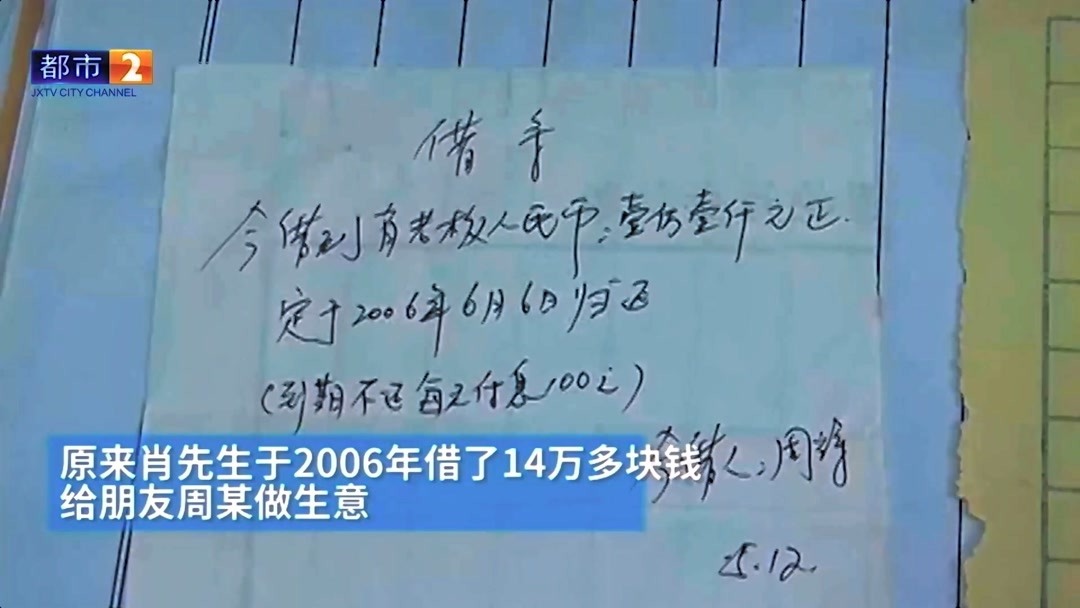 都市2
JXTV CITY CHANNEL
借
今借到肖老板人民币:壹仿壹仟元正.
定于2006年6月6日归还
(到期不还每天付息100元)
借人:周
5.12.
原来肖先生于2006年借了14万多块钱
给朋友周某做生意